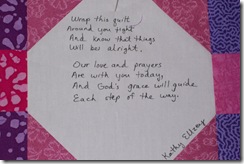 Wrap this quilt
Around you tight
And know that things
Will be alright.
Our love and prayers
Are with you today,
And God's grace will guide
Each step of the way.
Kathy